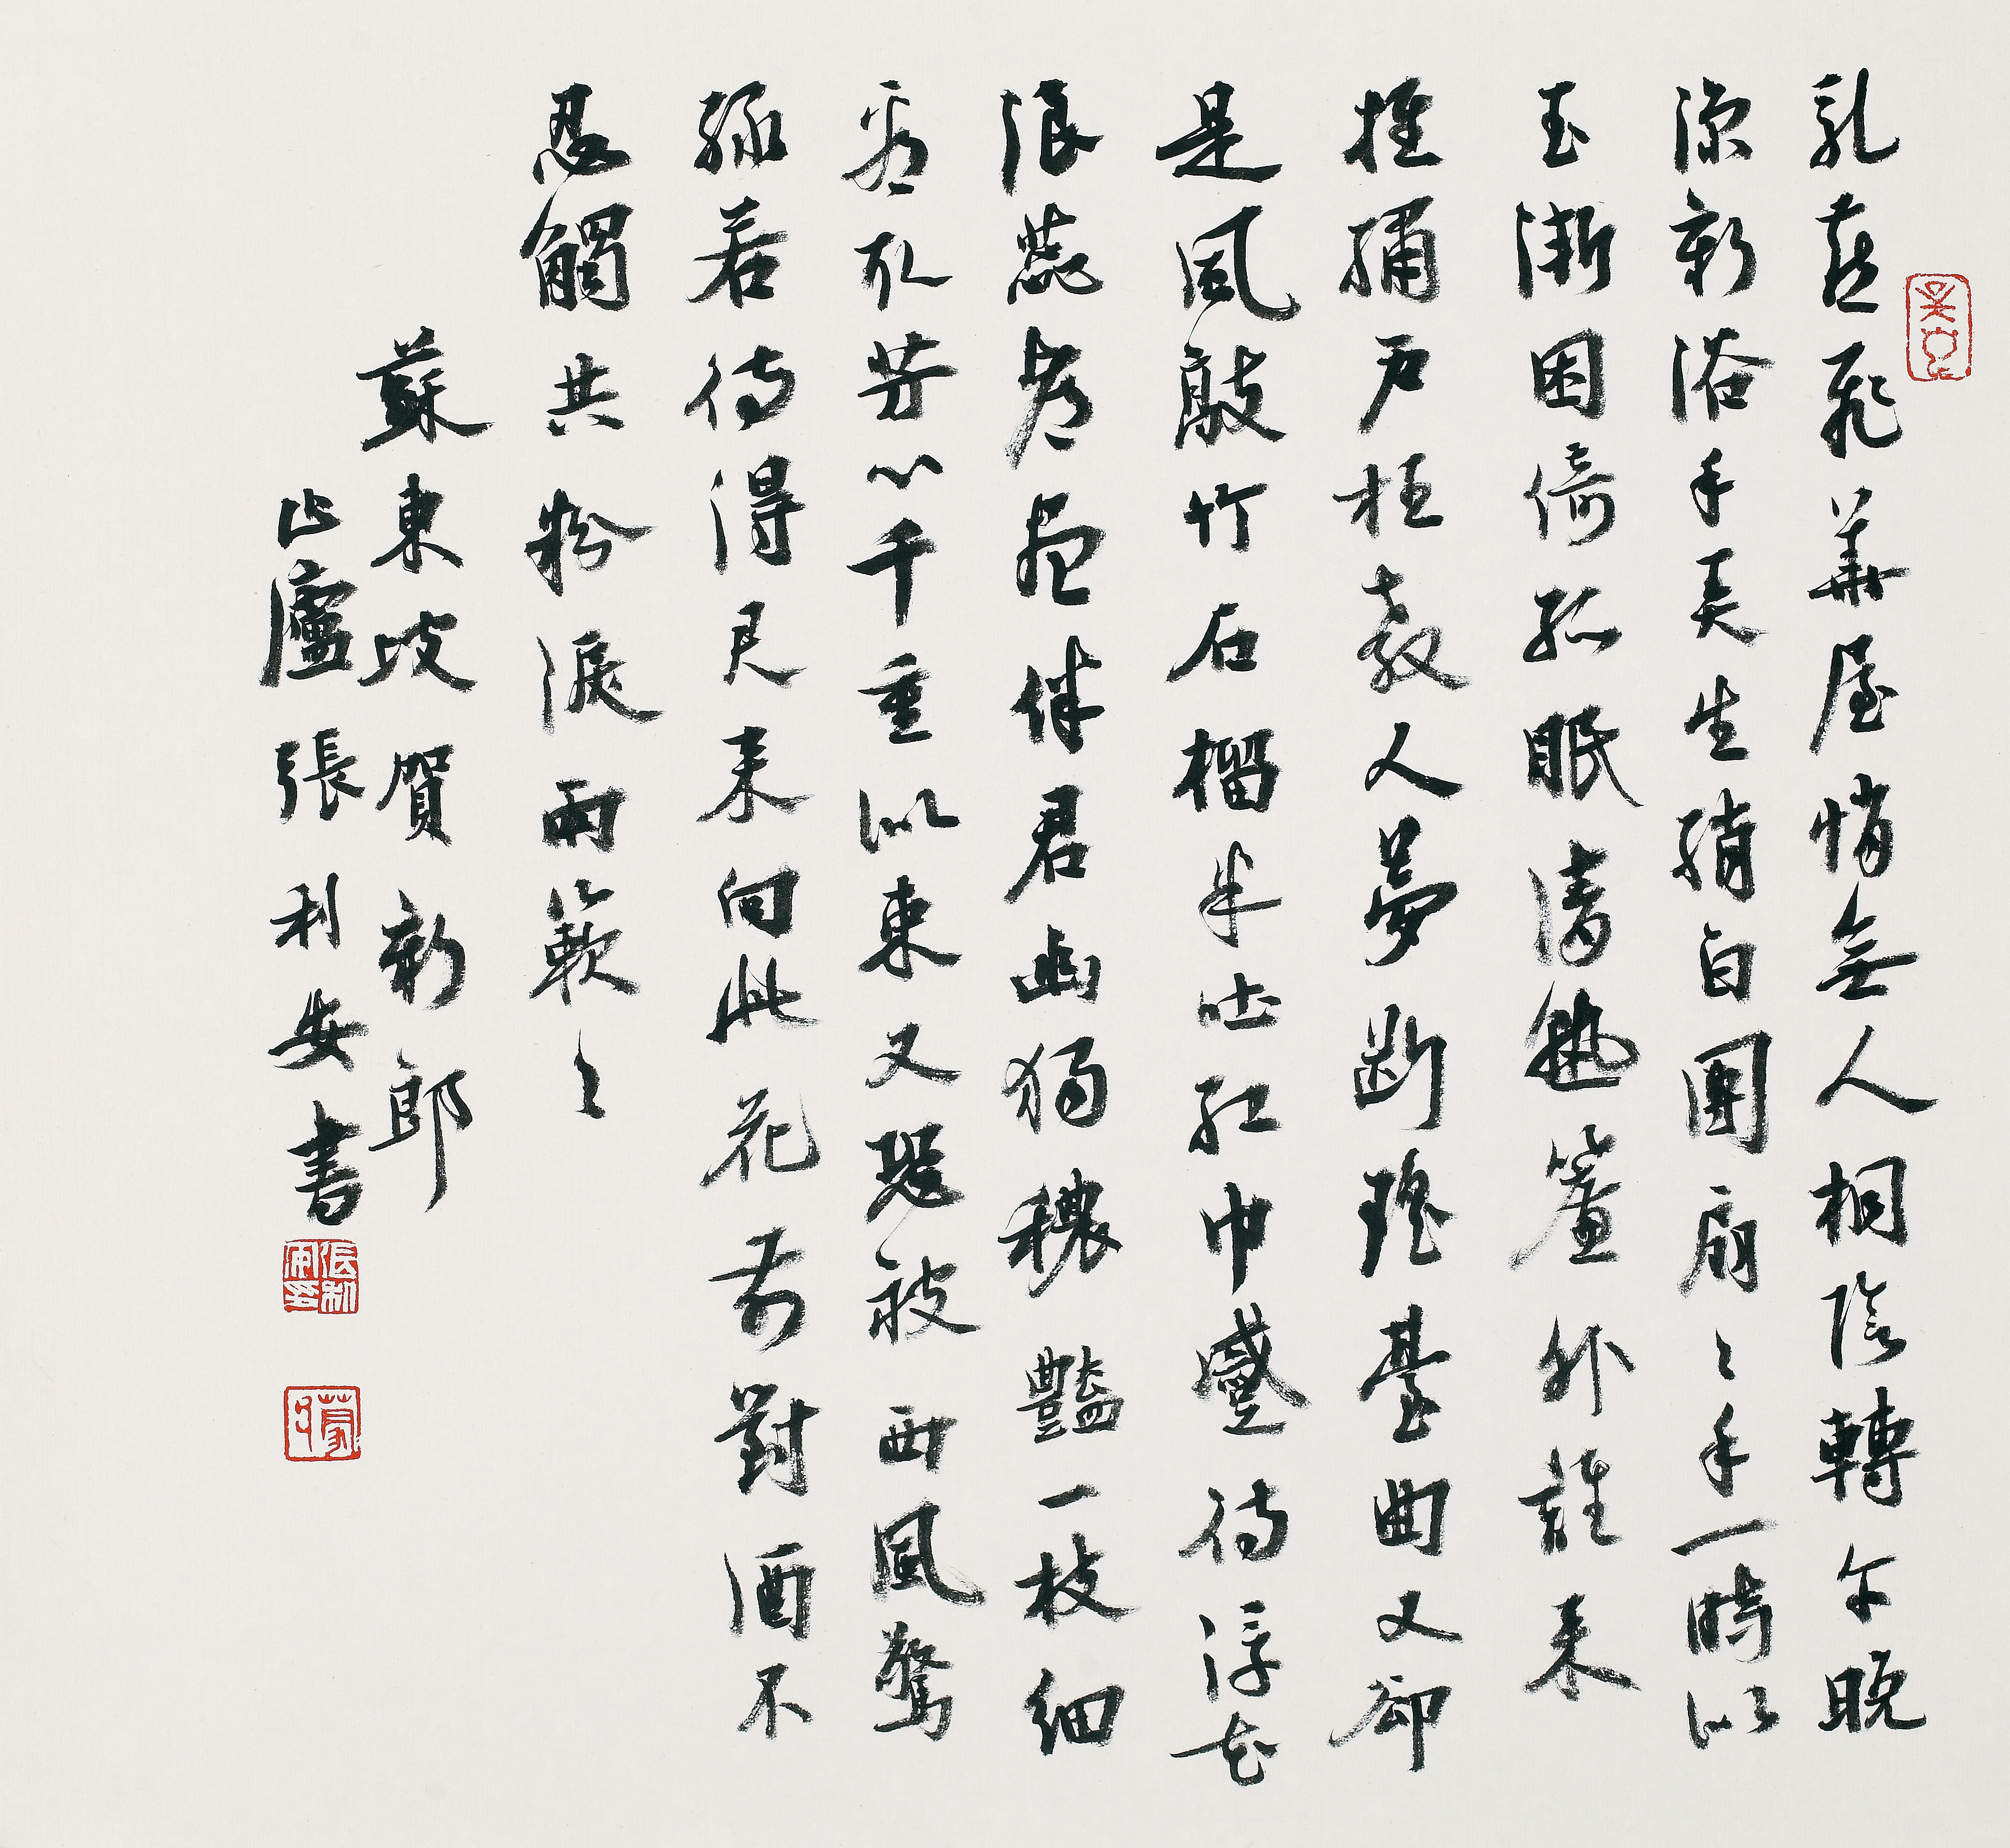 乳燕飛華屋悄無人桐陰轉午晚
涼新浴手弄生綃白團扇〻手一時似
玉漸困倚孤眠清熟簾外誰來
推繡戶枉教人夢斷瑤臺曲又却
是風敲竹石榴半吐紅巾蹙待浮花
浪蕊都盡伴君幽獨穠豔一枝細
看取芳心千重似束又恐被西風驚
綠若待得君來向此花前對酒不
忍觸共粉淚兩簌〻
蘇東坡賀新郎
廬張利安書
張利安